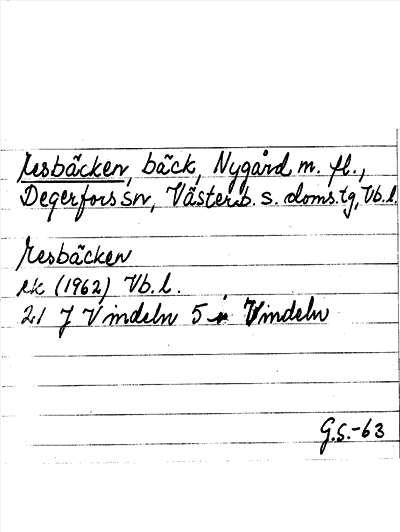 Resbäcken, bäck, Nygård m. fl.,
Degerfors sn, Västerb. s. doms.tg, Vb.l.
Resbäcken
ek (1962) Vb.l.
21 J Vindeln 5 i Vindeln
G.S.-63